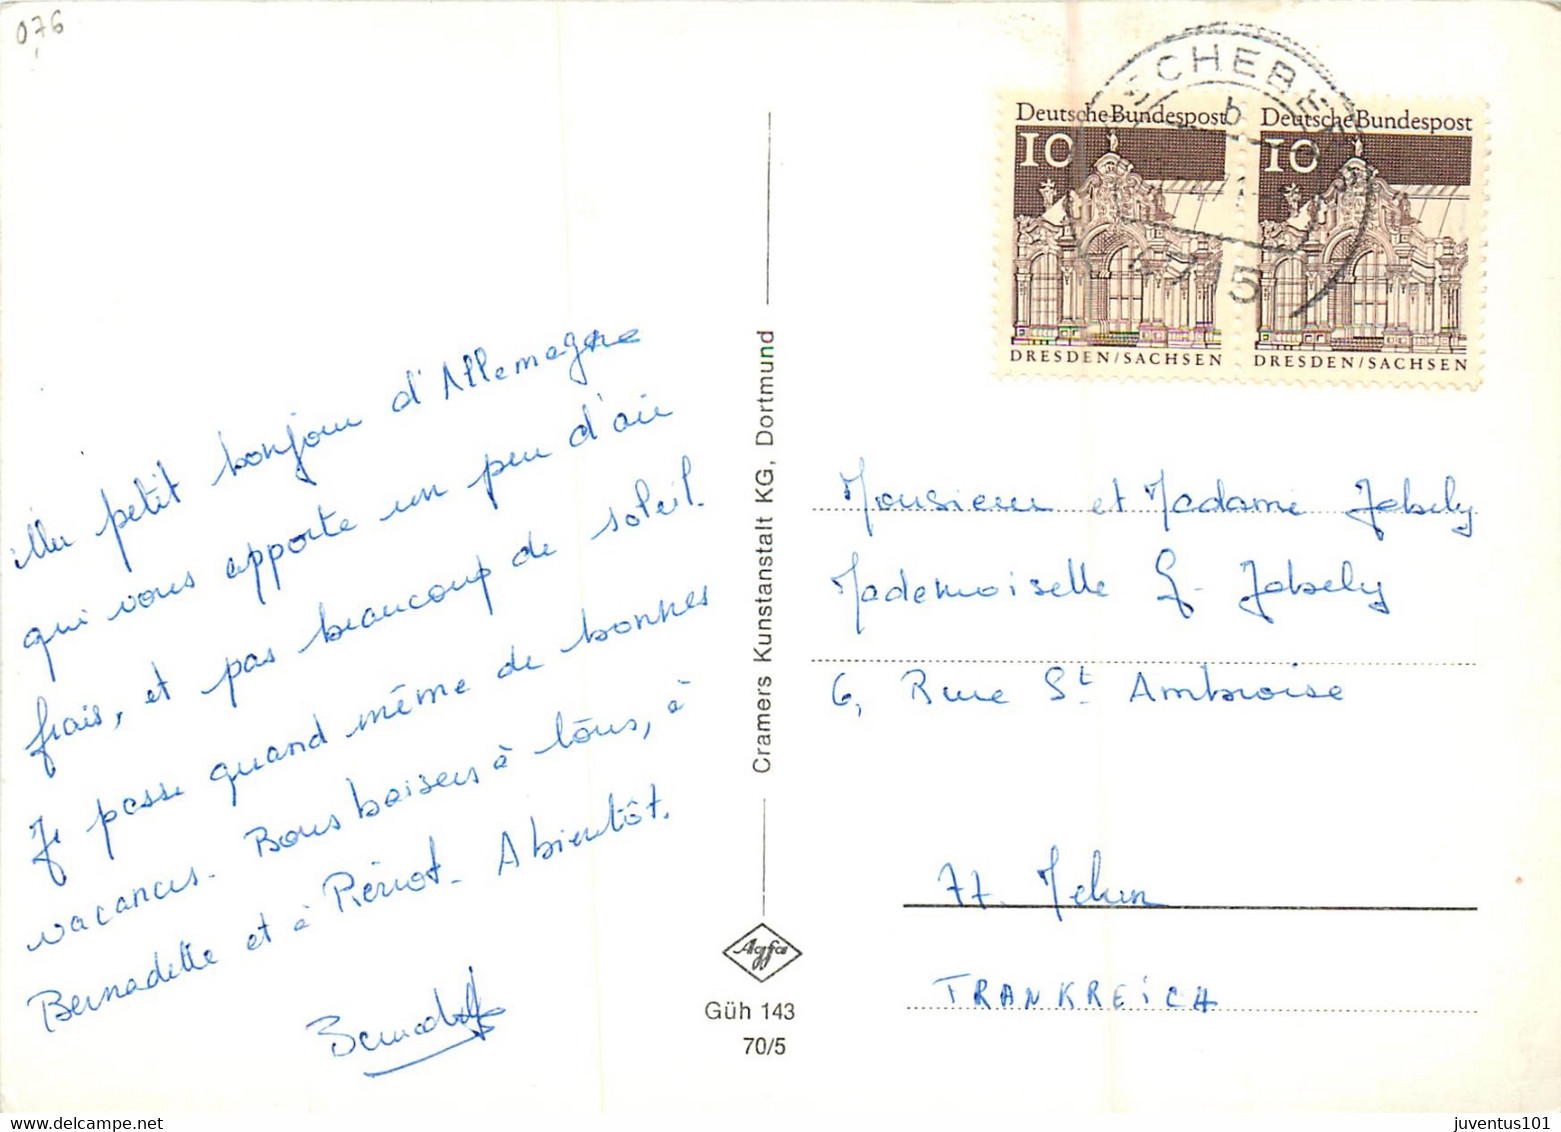 0,76
Un petit bonjour d'Allemagne
qui vous apporte un peu d'air
frais, et pas beaucoup de soleil.
Je passe quand même de bonnes
vacances. Bons baisers à tous, à
Bernadette et à Pierrot. A bientôt.
Cramers Kunstanstalt KG, Dortmund
Agfa
Güh 143
70/5
SCHEBE
b
4715
Deutsche Bundespost
10
DRESDEN/SACHSEN
Deutsche Bundespost
10
DRESDEN/SACHSEN
Monsieur et Madame Jobely
Mademoiselle G. Jobely
6, Rue St Ambroise
77. Melun
FRANKREICH
juventus101